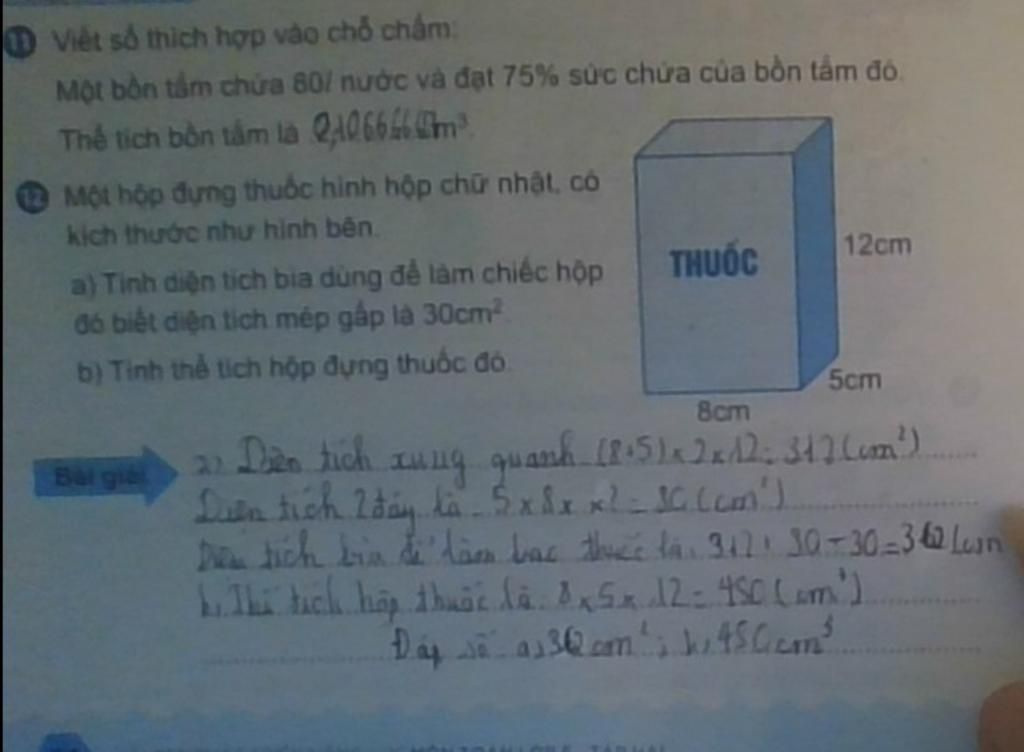 11 Viết số thích hợp vào chỗ chấm:
Một bồn tắm chứa 80l nước và đạt 75% sức chứa của bồn tắm đó.
Thể tích bồn tắm là m³.
12 Một hộp đựng thuốc hình hộp chữ nhật, có
kích thước như hình bên.
a) Tính diện tích bìa dùng để làm chiếc hộp
đó biết diện tích mép gấp là 30cm².
b) Tính thể tích hộp đựng thuốc đó.
THUỐC
12cm
5cm
8cm
Bài giải
a) Diện tích xung quanh (8+5)x2x12=312(cm²)
Diện tích 2 đáy là 5x8xx2=80(cm²)
Diện tích bìa để làm thuốc là. 312+
b, Thể tích hộp thuốc là: 8x5x12=480(cm³)
Đáp số a, cm²; b, 480cm³